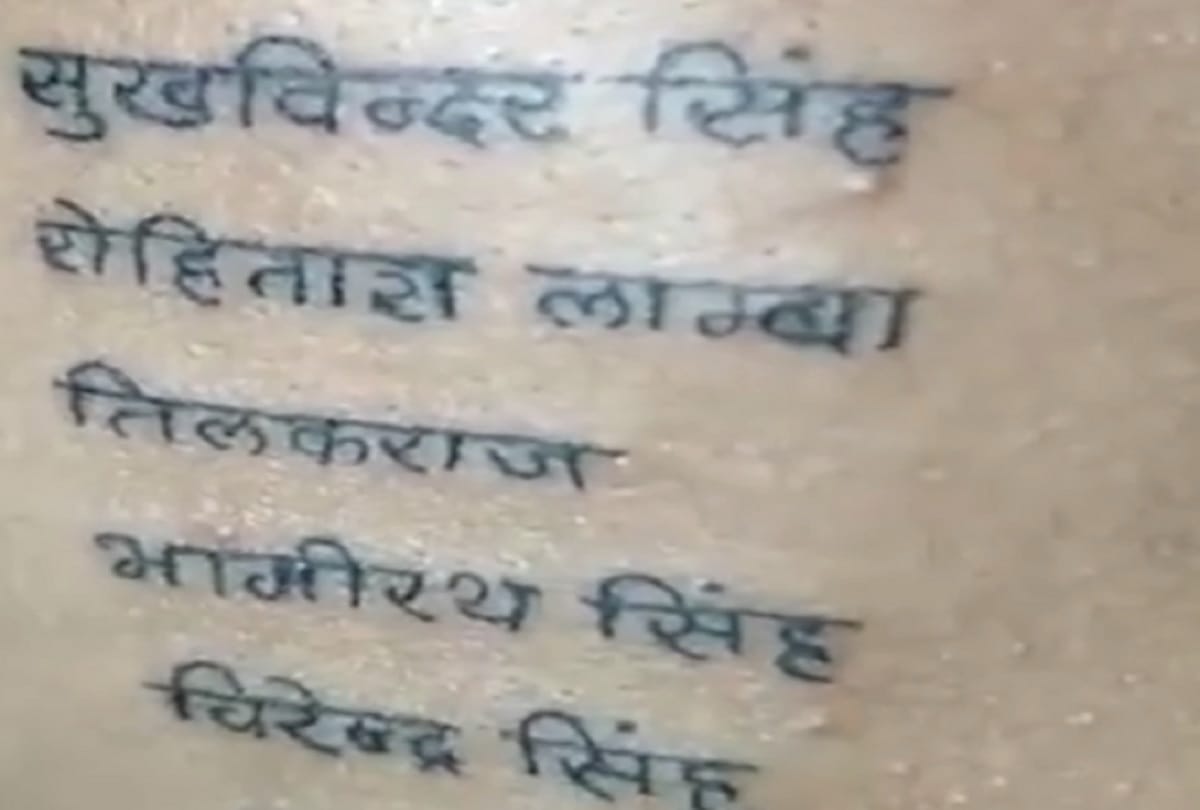 सुखविन्दर सिंह
रोहिताश लाम्बा
तिलकराज
भागीरथ सिंह
विरेन्द्र सिंह